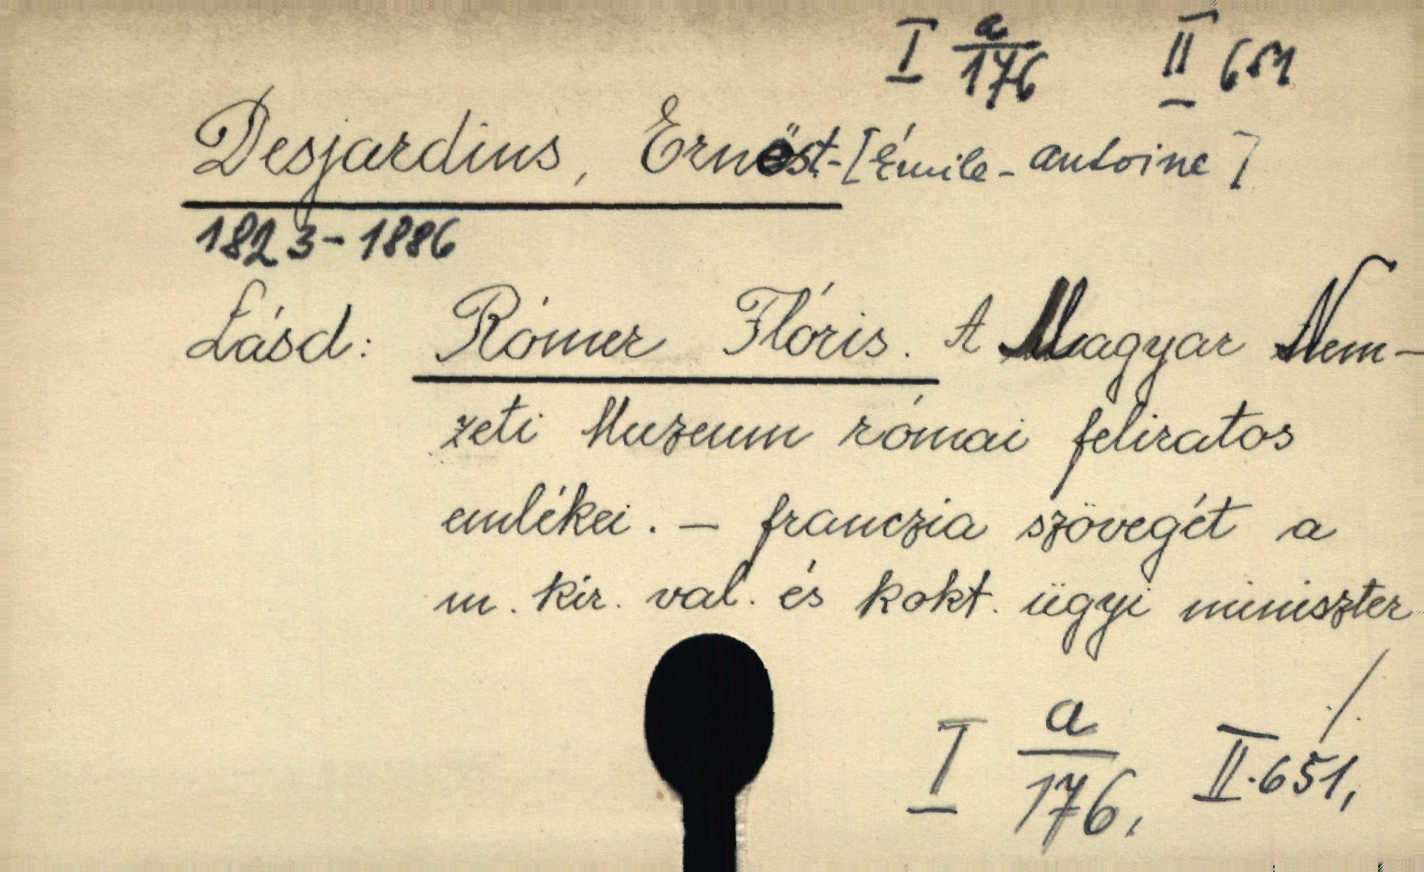 I a/176 II 651
Desjardins, Ernest-[Émile-antoine]
1823-1886
Lásd: Rómer Flóris. A Magyar Nem-
zeti Muzeum római feliratos
emlékei. — franczia szövegét a
m. kir. val. és kokt. ügyi miniszter
I a/176, II.651,